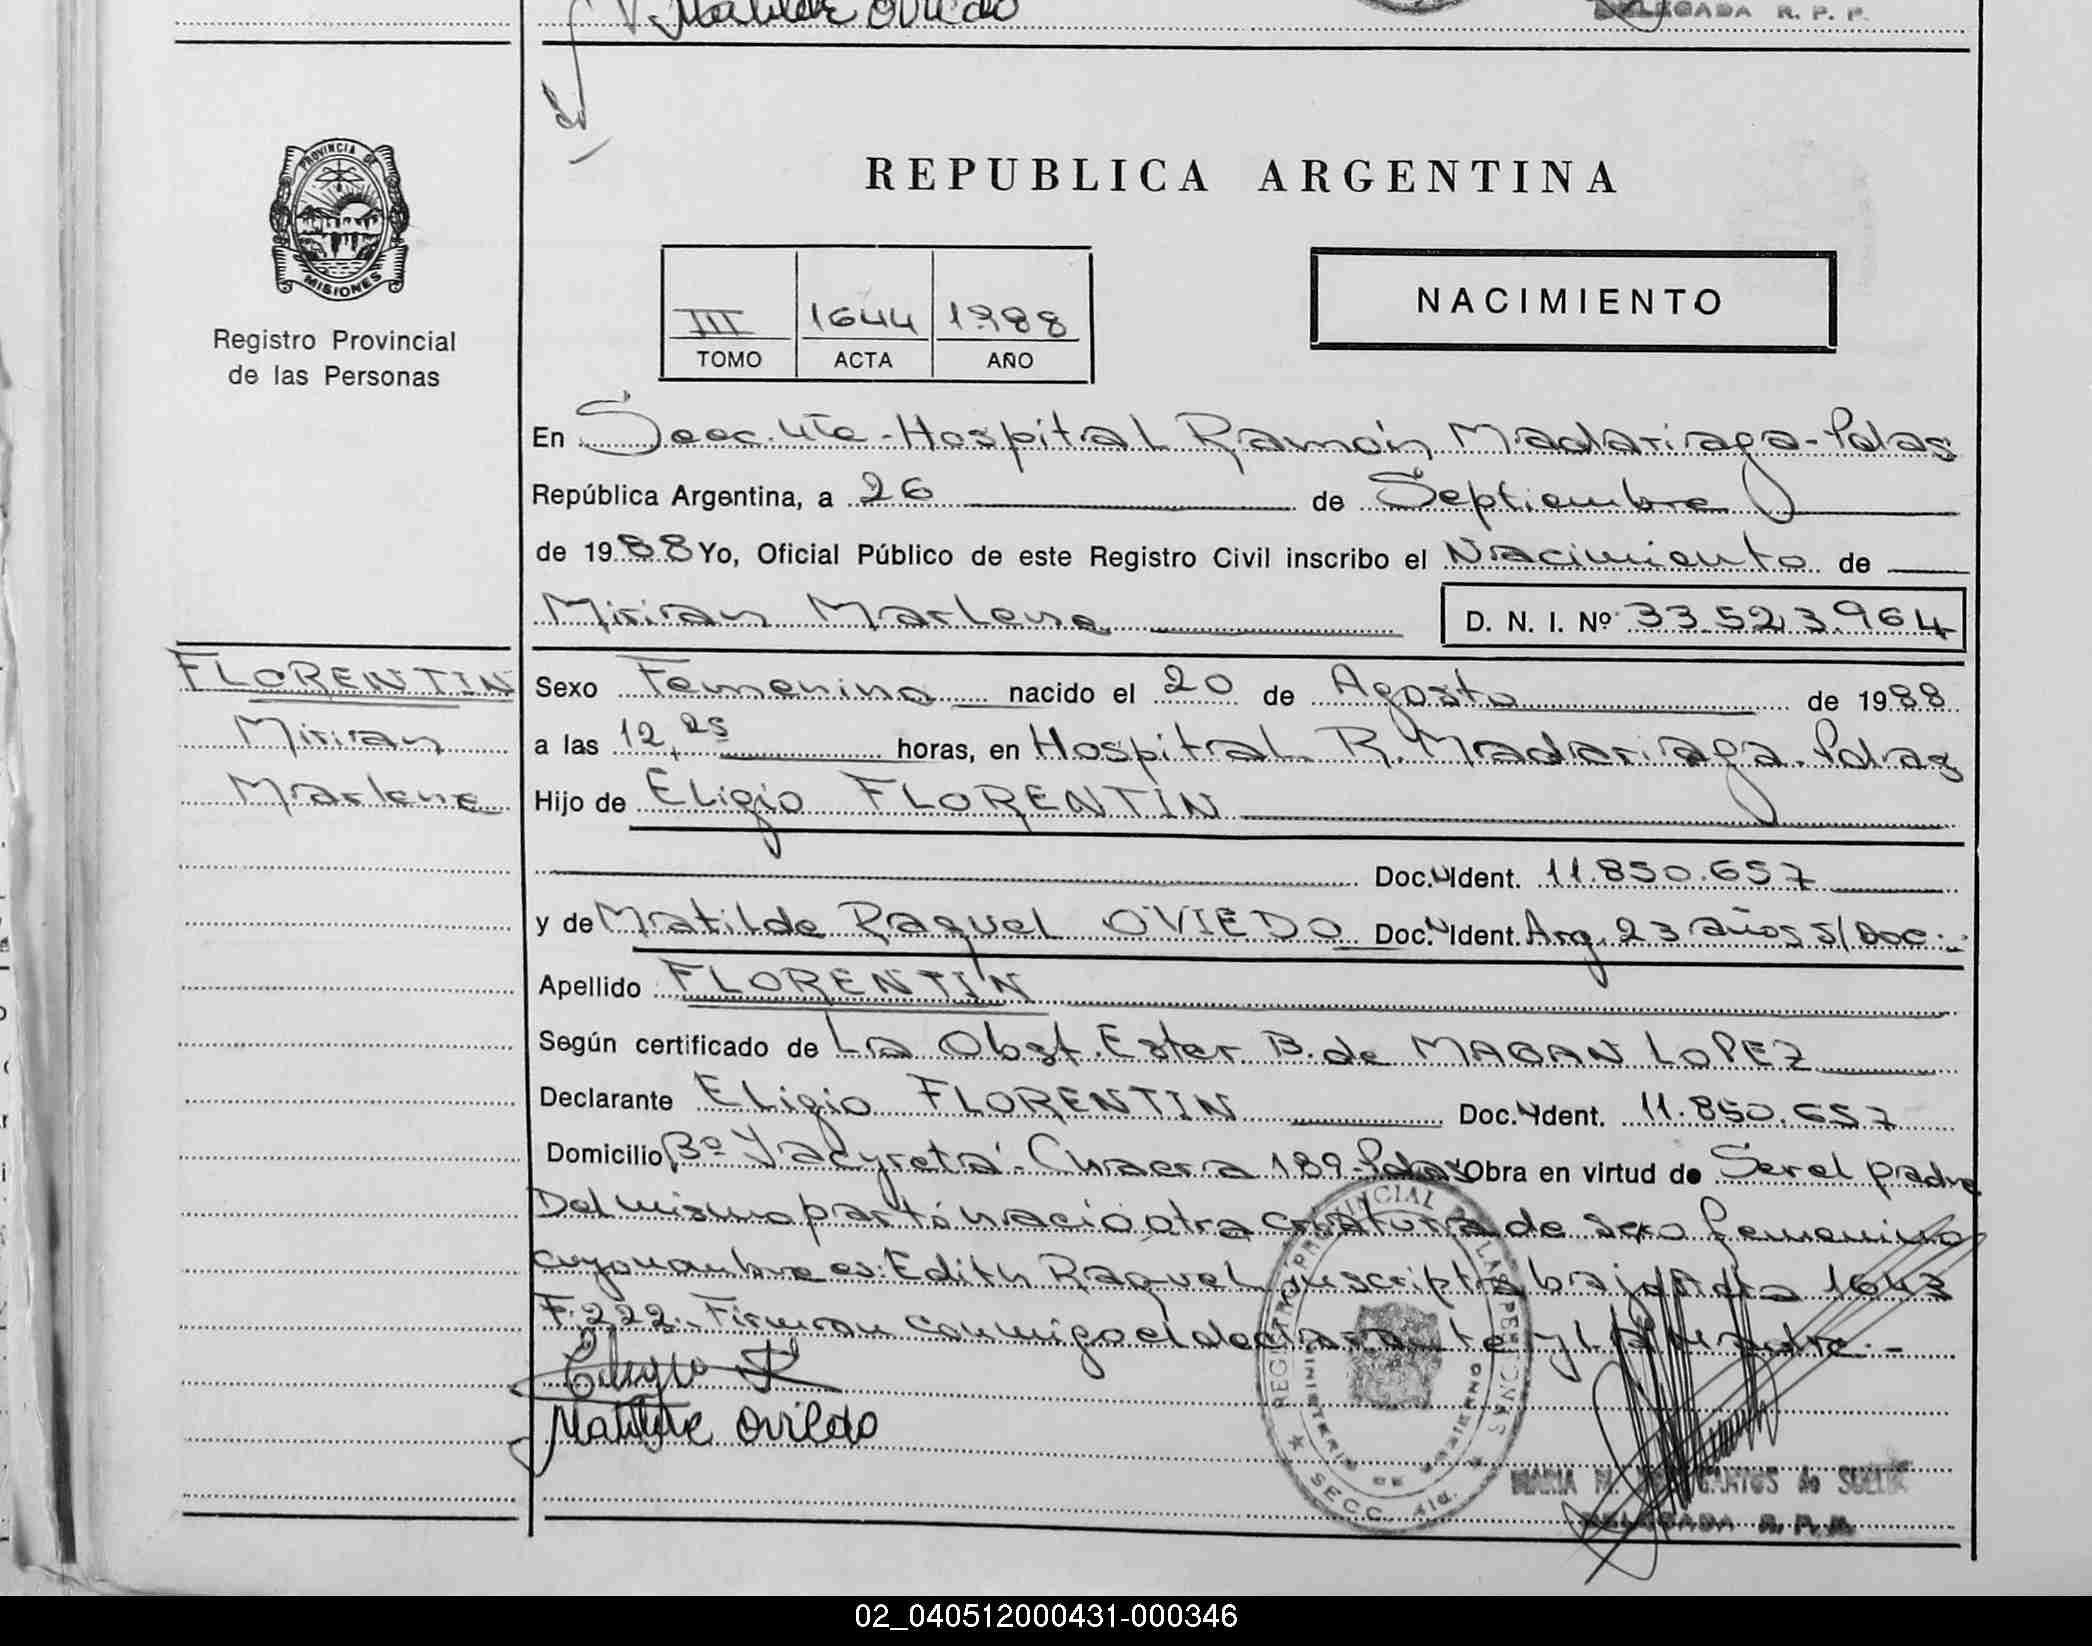 Matilde Oviedo
DELEGADA R. P. P.
PROVINCIA DE
MISIONES
Registro Provincial
de las Personas
REPUBLICA ARGENTINA
III 1644 1988
TOMO ACTA AÑO
NACIMIENTO
En Secc. 4ta - Hospital Ramón Madariaga - Pdas
República Argentina, a 26 de Septiembre
de 1988 Yo, Oficial Público de este Registro Civil inscribo el Nacimiento de
Mirian Marlene D. N. I. Nº 33.523.964
FLORENTIN
Mirian
Marlene
Sexo Femenino nacido el 20 de Agosto de 1988
a las 12,25 horas, en Hospital R. Madariaga. Pdas
Hijo de Eligio FLORENTIN
Doc. Ident. 11.850.657
y de Matilde Raquel OVIEDO Doc. Ident. Arg. 23 años s/Doc.
Apellido FLORENTIN
Según certificado de La Obst. Ester B. de MAGAN LOPEZ
Declarante Eligio FLORENTIN Doc. Ident. 11.850.657
Domicilio Bº Yacyretá - Chacra 189 - Pdas Obra en virtud de Ser el padre
Del mismo parto nació otra criatura de sexo femenino
cuyo nombre es: Edith Raquel inscripta bajo Acta 1643
F. 222. Firman conmigo el declarante y la Madre. -
Matilde Oviedo
REGISTRO PROVINCIAL DE LAS PERSONAS
MINISTERIO DE GOBIERNO
SECC. 4ta.
MARIA M. SANTOS de
DELEGADA R. P. P.
02_040512000431-000346